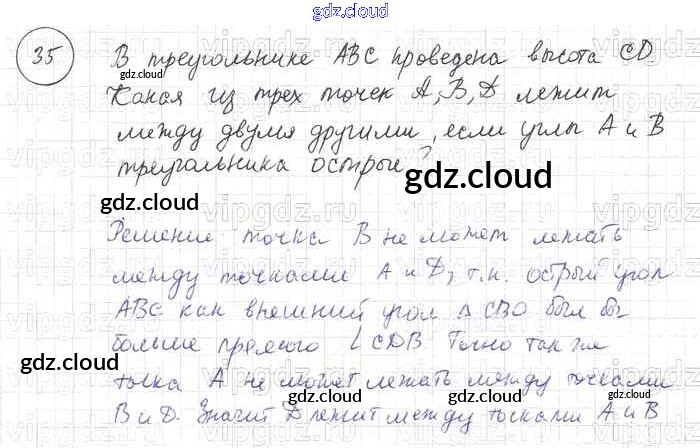 gdz.cloud
35
В треугольнике ABC проведена высота CD.
gdz.cloud
Какая из трех точек A, B, D лежит
между двумя другими, если углы A и B
треугольника острые?
gdz.cloud
gdz.cloud
Решение точка B не может лежать
между точками A и D, т.к. острый угол
ABC как внешний угол △ CBD был бы
gdz.cloud
больше прямого ∠ CDB Точно так же
gdz.cloud
точка A не может лежать между точками
B и D. Значит D лежит между точками A и B
gdz.cloud
gdz.cloud